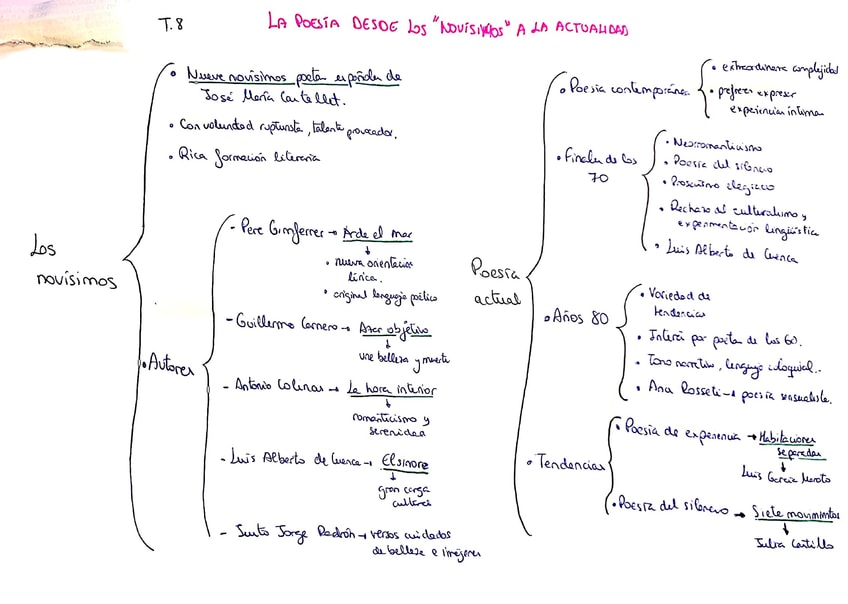 T.8
LA POESÍA DESDE LOS "NOVÍSIMOS" A LA ACTUALIDAD
Los
novísimos
• Nueve novísimos poetas españoles de
José María Castellet.
• Con voluntad rupturista, talante provocador.
• Rica formación literaria
• Autores
- Pere Gimferrer → Arde el mar
• nueva orientación
lírica.
• original lenguaje poético
- Guillermo Carnero → Azar objetivo
une belleza y muerte
- Antonio Colinas → La hora interior
romanticismo y
serenidad
- Luis Alberto de Cuenca → Elsinore
gran carga
cultural
- Justo Jorge Padrón → versos cuidados
de belleza e imágenes
Poesía
actual
• Poesía contemporánea
• extraordinaria complejidad
• prefieren expresar
experiencia íntima
• Finales de los
70
• Neorromanticismo
• Poesía del silencio
• Prosaísmo elegíaco
• Rechazo del culturalismo y
experimentación lingüística
• Luis Alberto de Cuenca
• Años 80
• Variedad de
tendencias
• Interés por poetas de los 60.
• Tono narrativo, lenguaje coloquial.
• Ana Rosseti → poesía sensualista.
• Tendencias
• Poesía de experiencia → Habitaciones
separadas
Luis García Montero
• Poesía del silencio → Siete movimientos
Julia Castillo